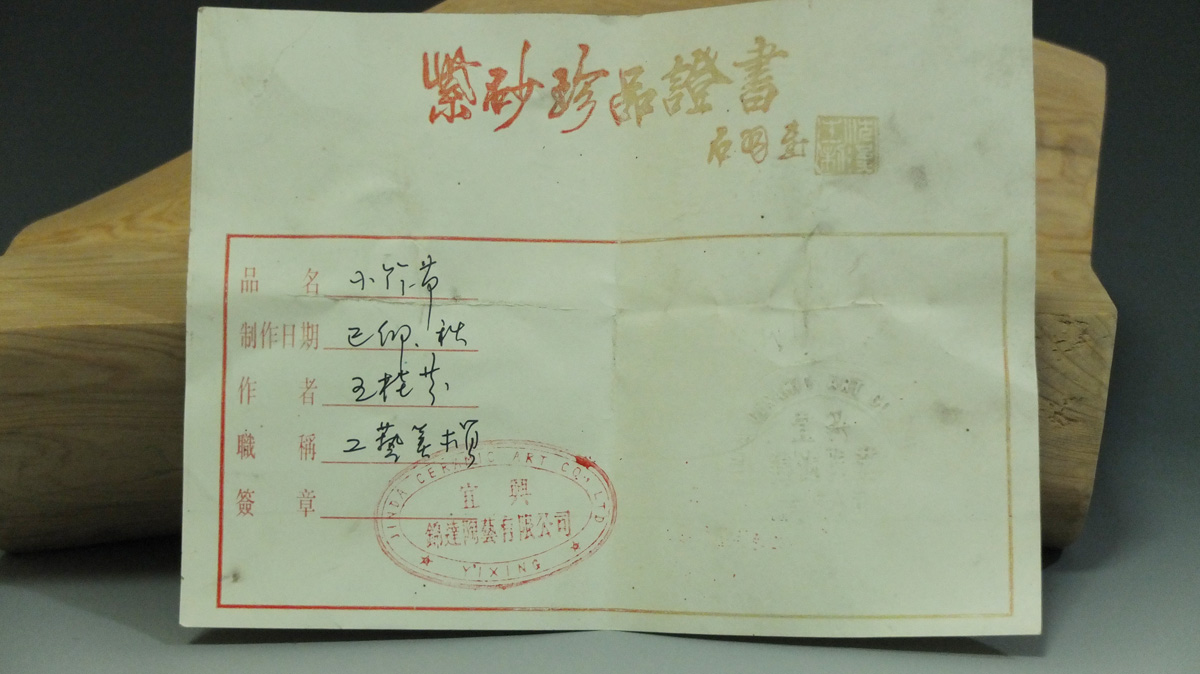 紫砂珍品證書
品名 小竹节
制作日期 己卯.秋
作者 王桂芬
職稱 工藝美術員
簽章
JINDA CERAMIC ART CO., LTD
宜興
錦達陶藝有限公司
YIXING